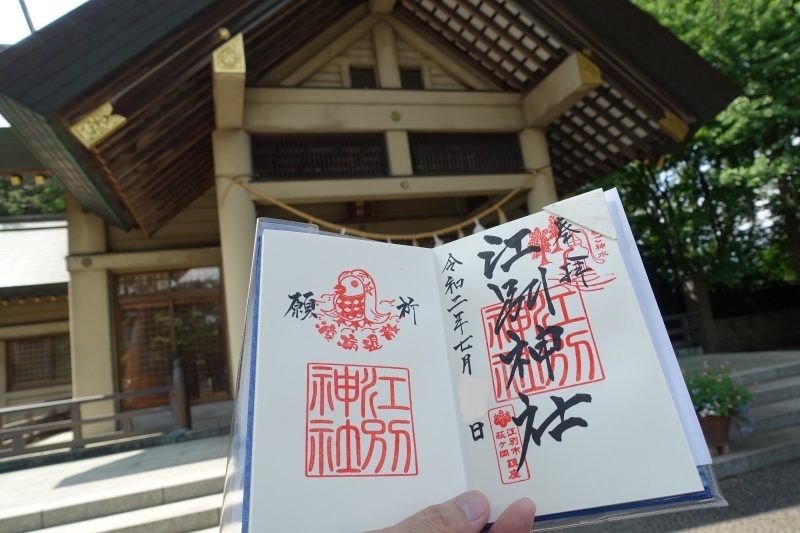 奉拝
江別神社
江別
神社
江別市鎮座
萩ケ岡
令和二年七月 日
祈
願
江別
神社